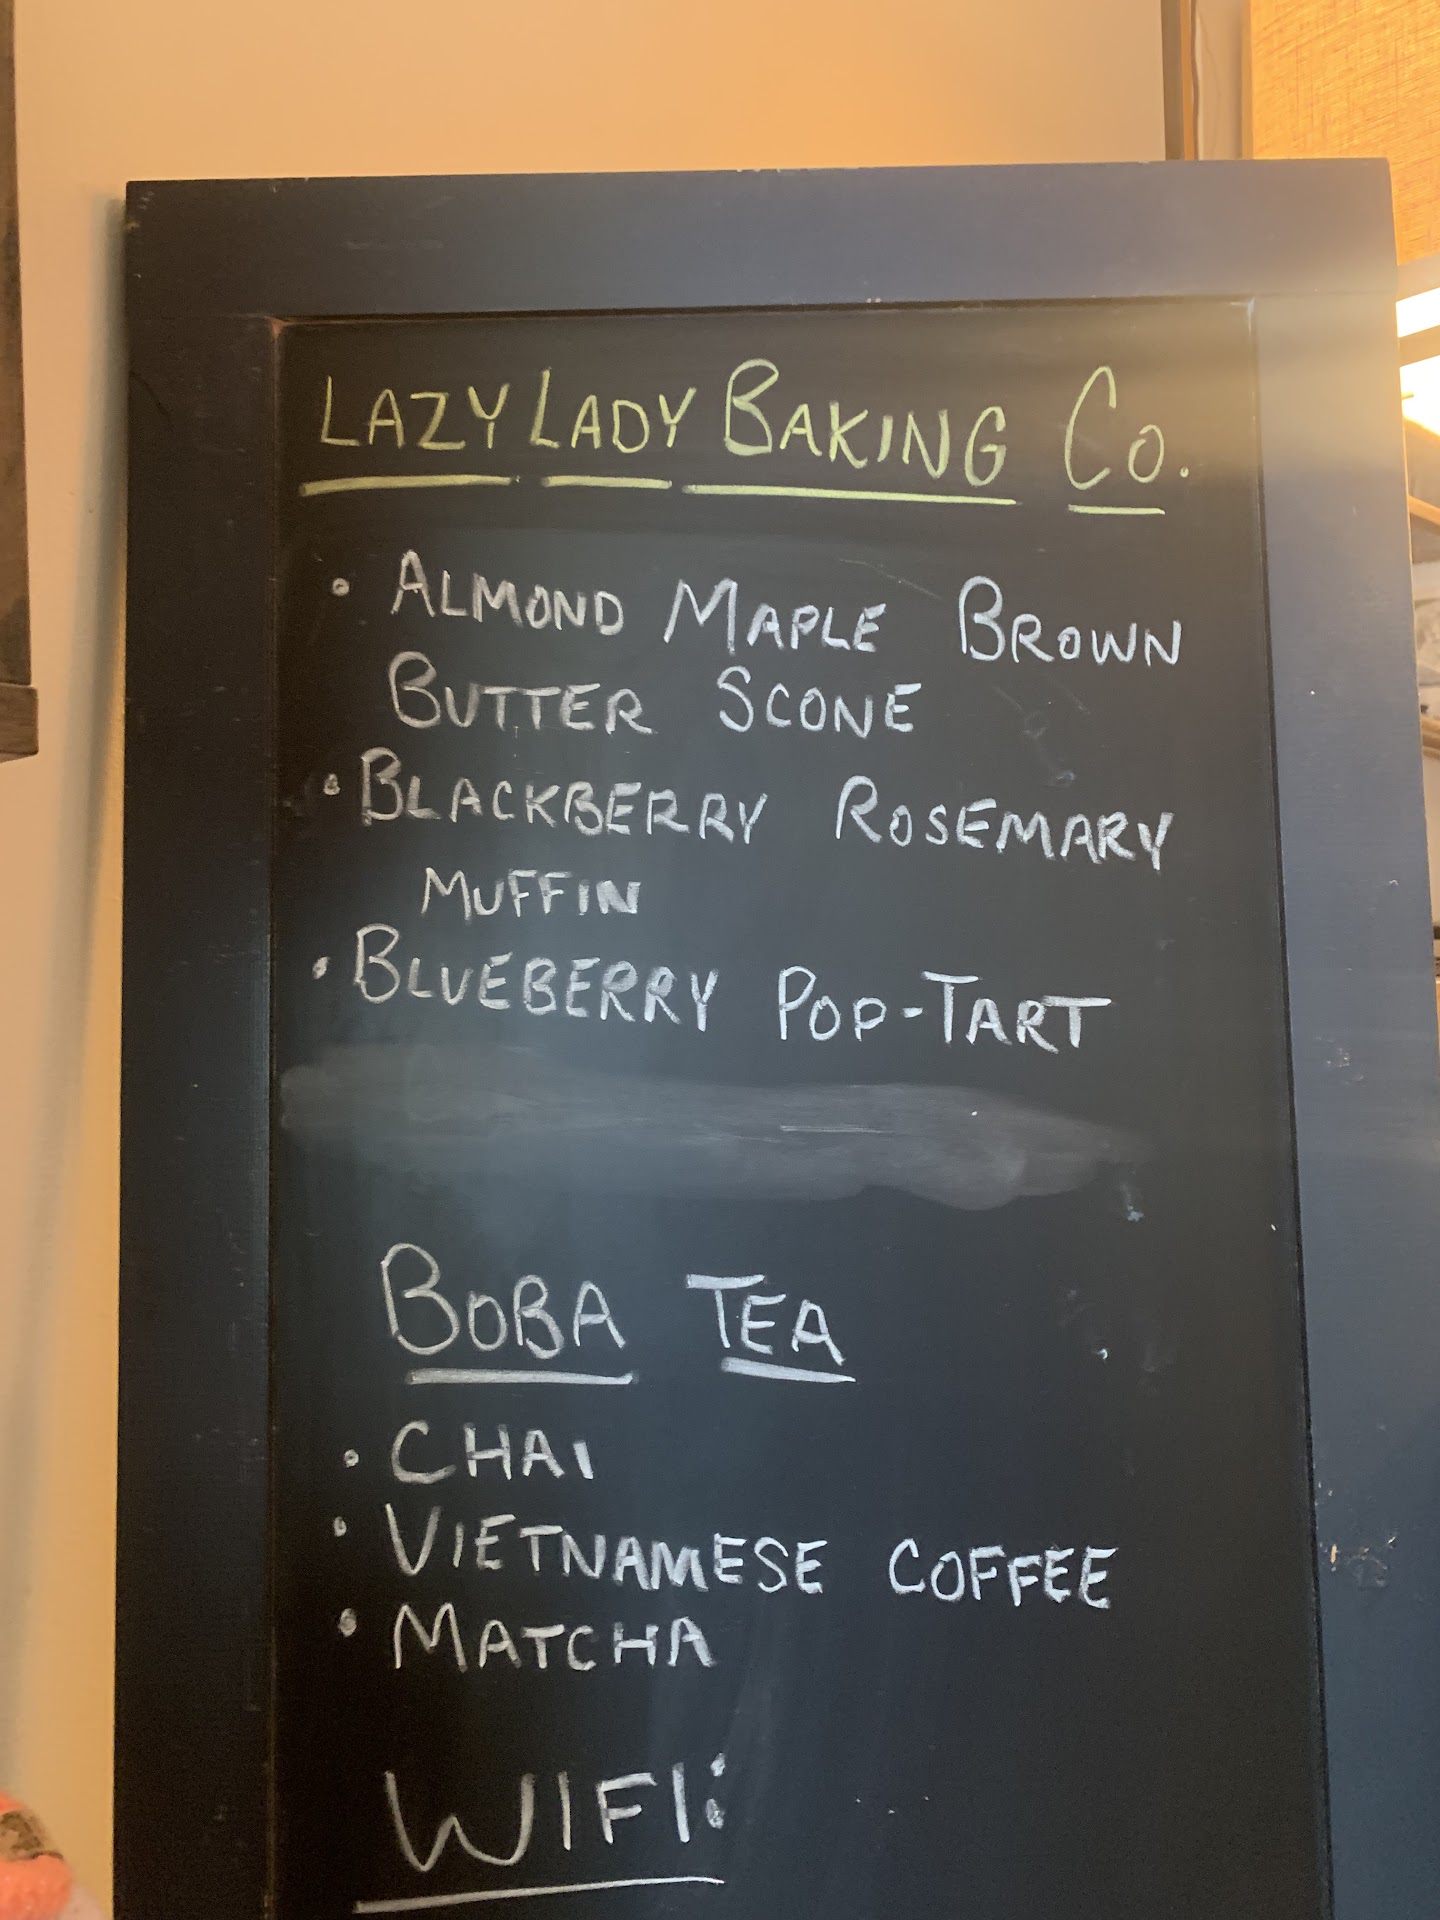 LAZY LADY BAKING CO.
• ALMOND MAPLE BROWN
BUTTER SCONE
• BLACKBERRY ROSEMARY
MUFFIN
• BLUEBERRY POP-TART
BOBA TEA
• CHAI
• VIETNAMESE COFFEE
• MATCHA
WIFI: